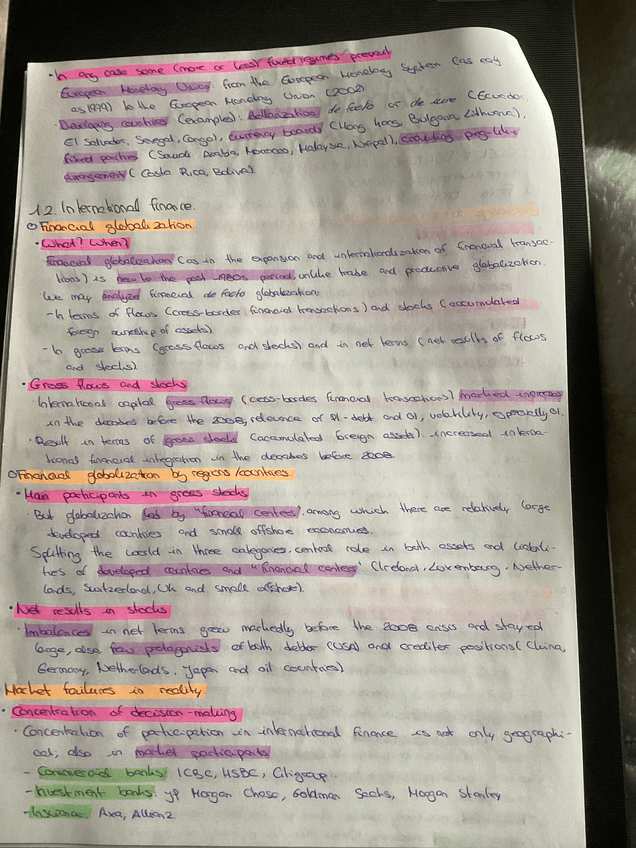 · In any case some (more or less) fixed regimes prevail
European Monetary Union: from the European Monetary System (as early
as 1979) to the European Monetary Union (2002)
· Developing countries (examples): dollarization de facto or de iure (Ecuador,
El Salvador, Senegal, Congo), currency boards (Hong Kong, Bulgaria, Lithuania),
fixed parities (Saudi Arabia, Morocco, Malaysia, Nepal), crawling peg-like
arrangement (Costa Rica, Bolivia).
1.2. International finance.
○ Financial globalization
· What? When?
Financial globalization (as in the expansion and internationalization of financial transac-
tions) is new to the post 1980s period, unlike trade and productive globalization.
We may analyze financial de facto globalization:
- In terms of flows (cross-border financial transactions) and stocks (accumulated
foreign ownership of assets)
- In gross terms (gross flows and stocks) and in net terms (net results of flows
and stocks).
· Gross flows and stocks
International capital gross flows (cross-border financial transactions) marked increase
in the decades before the 2008, relevance of PI-debt and OI, volatility, especially OI.
· Result in terms of gross stocks (accumulated foreign assets): increased interna-
tional financial integration in the decades before 2008.
○ Financial globalization by regions/countries.
· Main participants in gross stocks
· But globalization led by "financial centers", among which there are relatively large
developed countries and small offshore economies.
Splitting the world in three categories: central role in both assets and liabili-
ties of developed countries and "financial centers" (Ireland, Luxembourg, Nether-
lands, Switzerland, UK and small offshore).
· Net results in stocks
· Imbalances in net terms grew markedly before the 2008 crisis and stayed
large, also few protagonists of both debtor (USA) and creditor positions (China,
Germany, Netherlands, Japan and oil countries)
Market failures in reality
· Concentration of decision-making
· Concentration of participation in international finance is not only geographi-
cal, also in market participants
- Commercial banks: ICBC, HSBC, Citigroup..
- Investment banks: JP Morgan Chase, Goldman Sachs, Morgan Stanley
- Insurance: Axa, Allianz